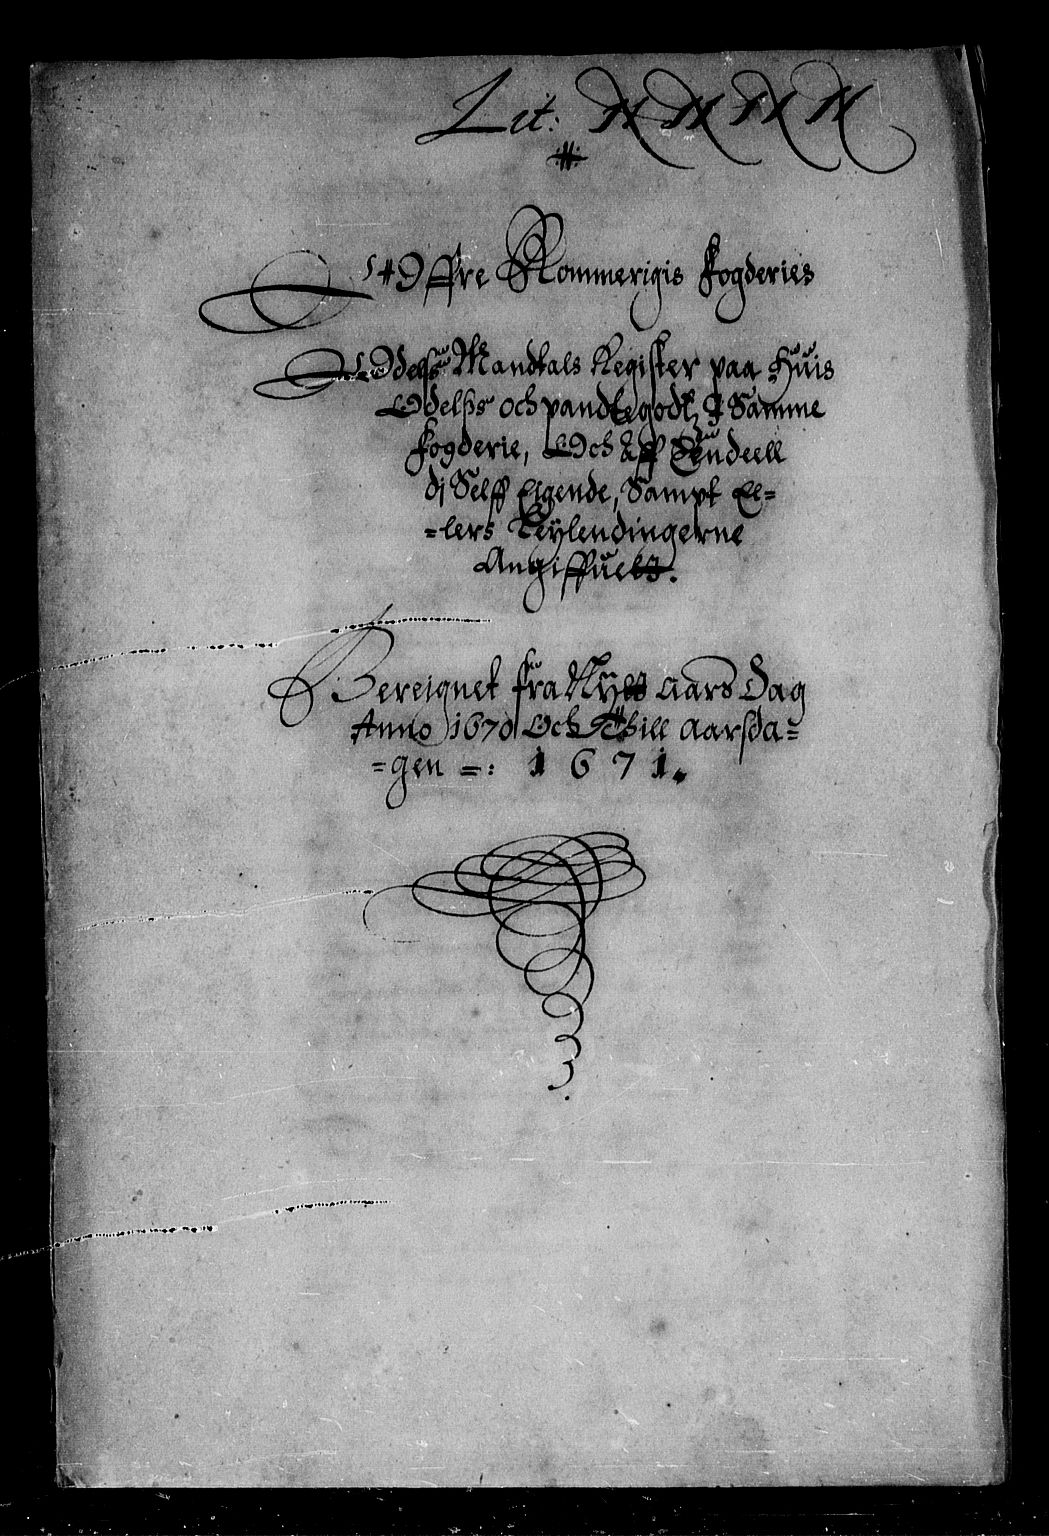 Lit: N N N N
Øffre Rommerigis Fogderies
Odelß Mandtals Register paa Huis
Odelßs och pandtegodtz J Samme
Fogderie, Och Aff Eendeell
dj Selff Eigende, Sampt El=
=lers Leylendingerne
Angiffuett.
Bereignet fra Nyes Aars Dag
Anno 1670 Och Thill Aarsda=
=gen =: 1671.